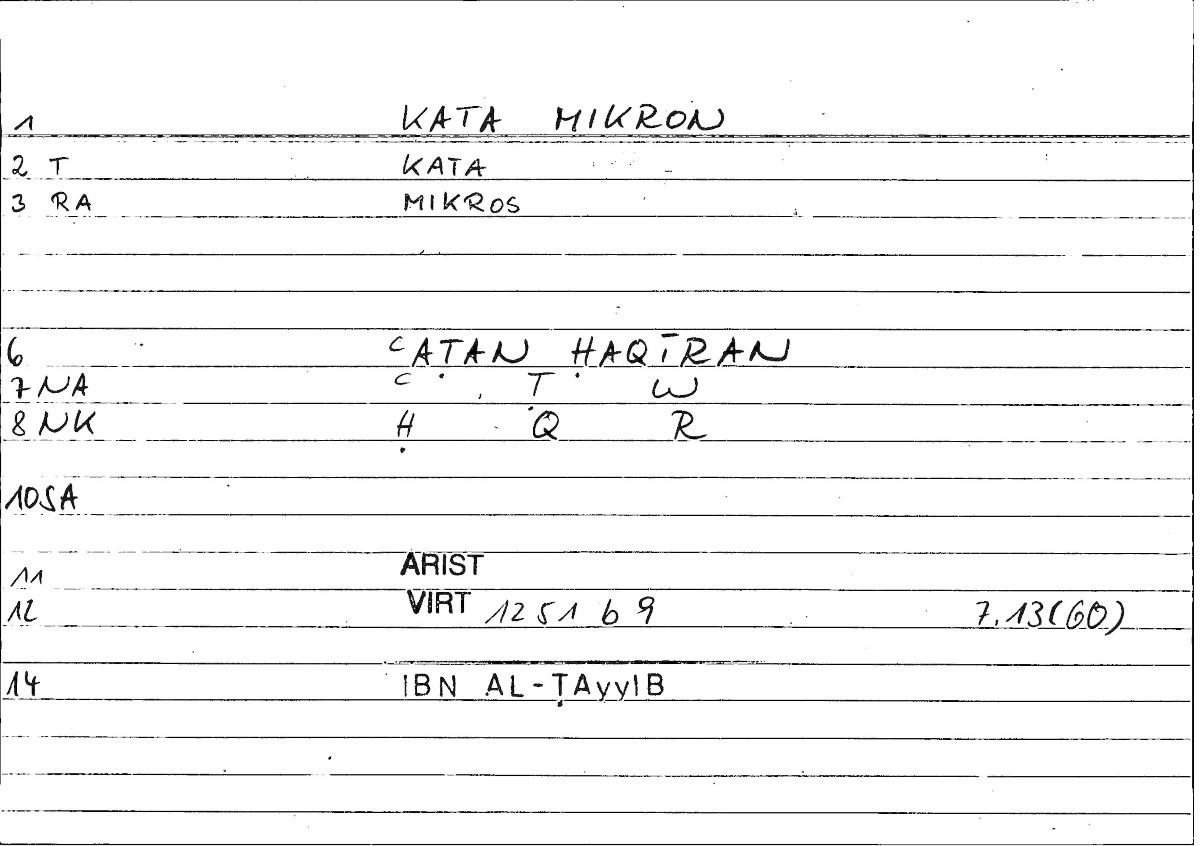 1 KATA MIKRON
2 T KATA
3 RA MIKROS
6 ʿAṬAN ḤAQĪRAN
7 NA ʿ Ṭ W
8 NK Ḥ Q R
10 SA
11 ARIST
12 VIRT 1251 b 9 7.13(60)
14 IBN AL-ṬAyyIB